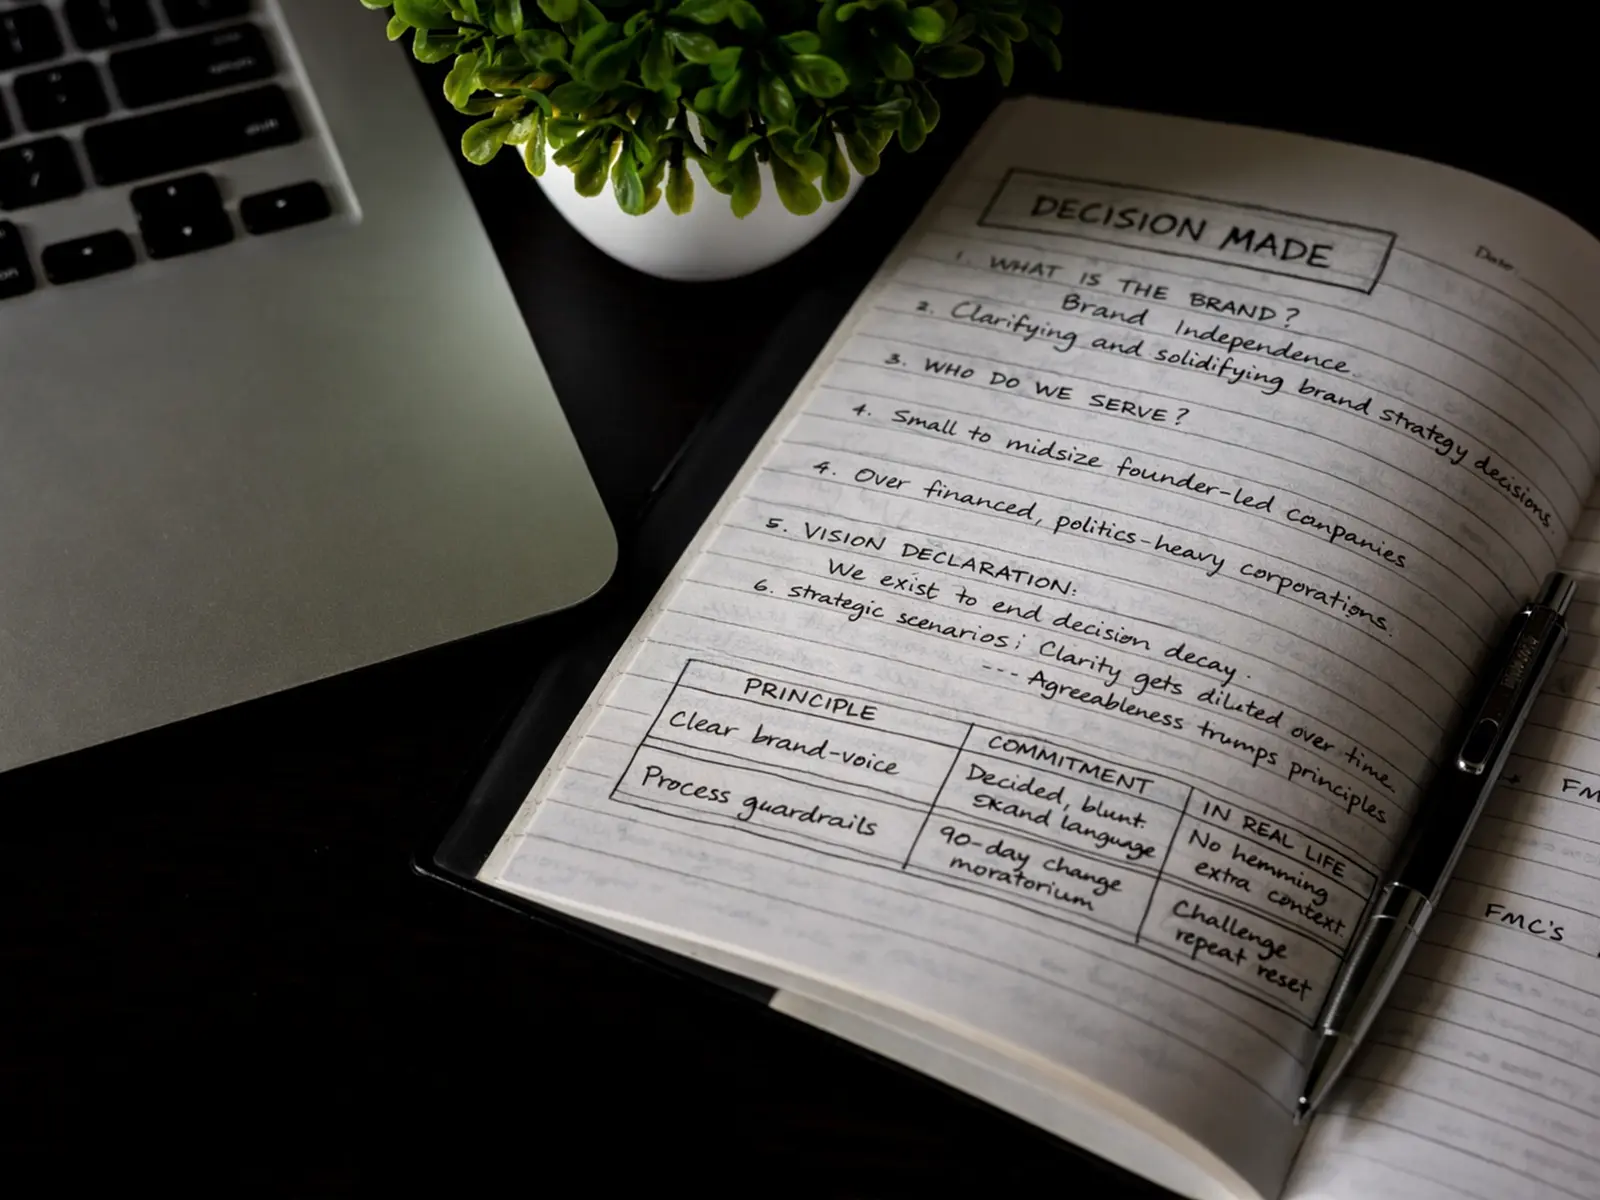 DECISION MADE
Date
1. WHAT IS THE BRAND?
Brand Independence.
2. Clarifying and solidifying brand strategy decisions.
3. WHO DO WE SERVE?
4. Small to midsize founder-led companies
4. Over financed, politics-heavy corporations.
5. VISION DECLARATION:
We exist to end decision decay.
6. strategic scenarios; Clarity gets diluted over time.
--- Agreeableness trumps principles
PRINCIPLE
COMMITMENT
IN REAL LIFE
Clear brand-voice
Decided, blunt.
skand language
No hemming
extra context.
Process guardrails
90-day change
moratorium
Challenge
repeat reset
FMC's